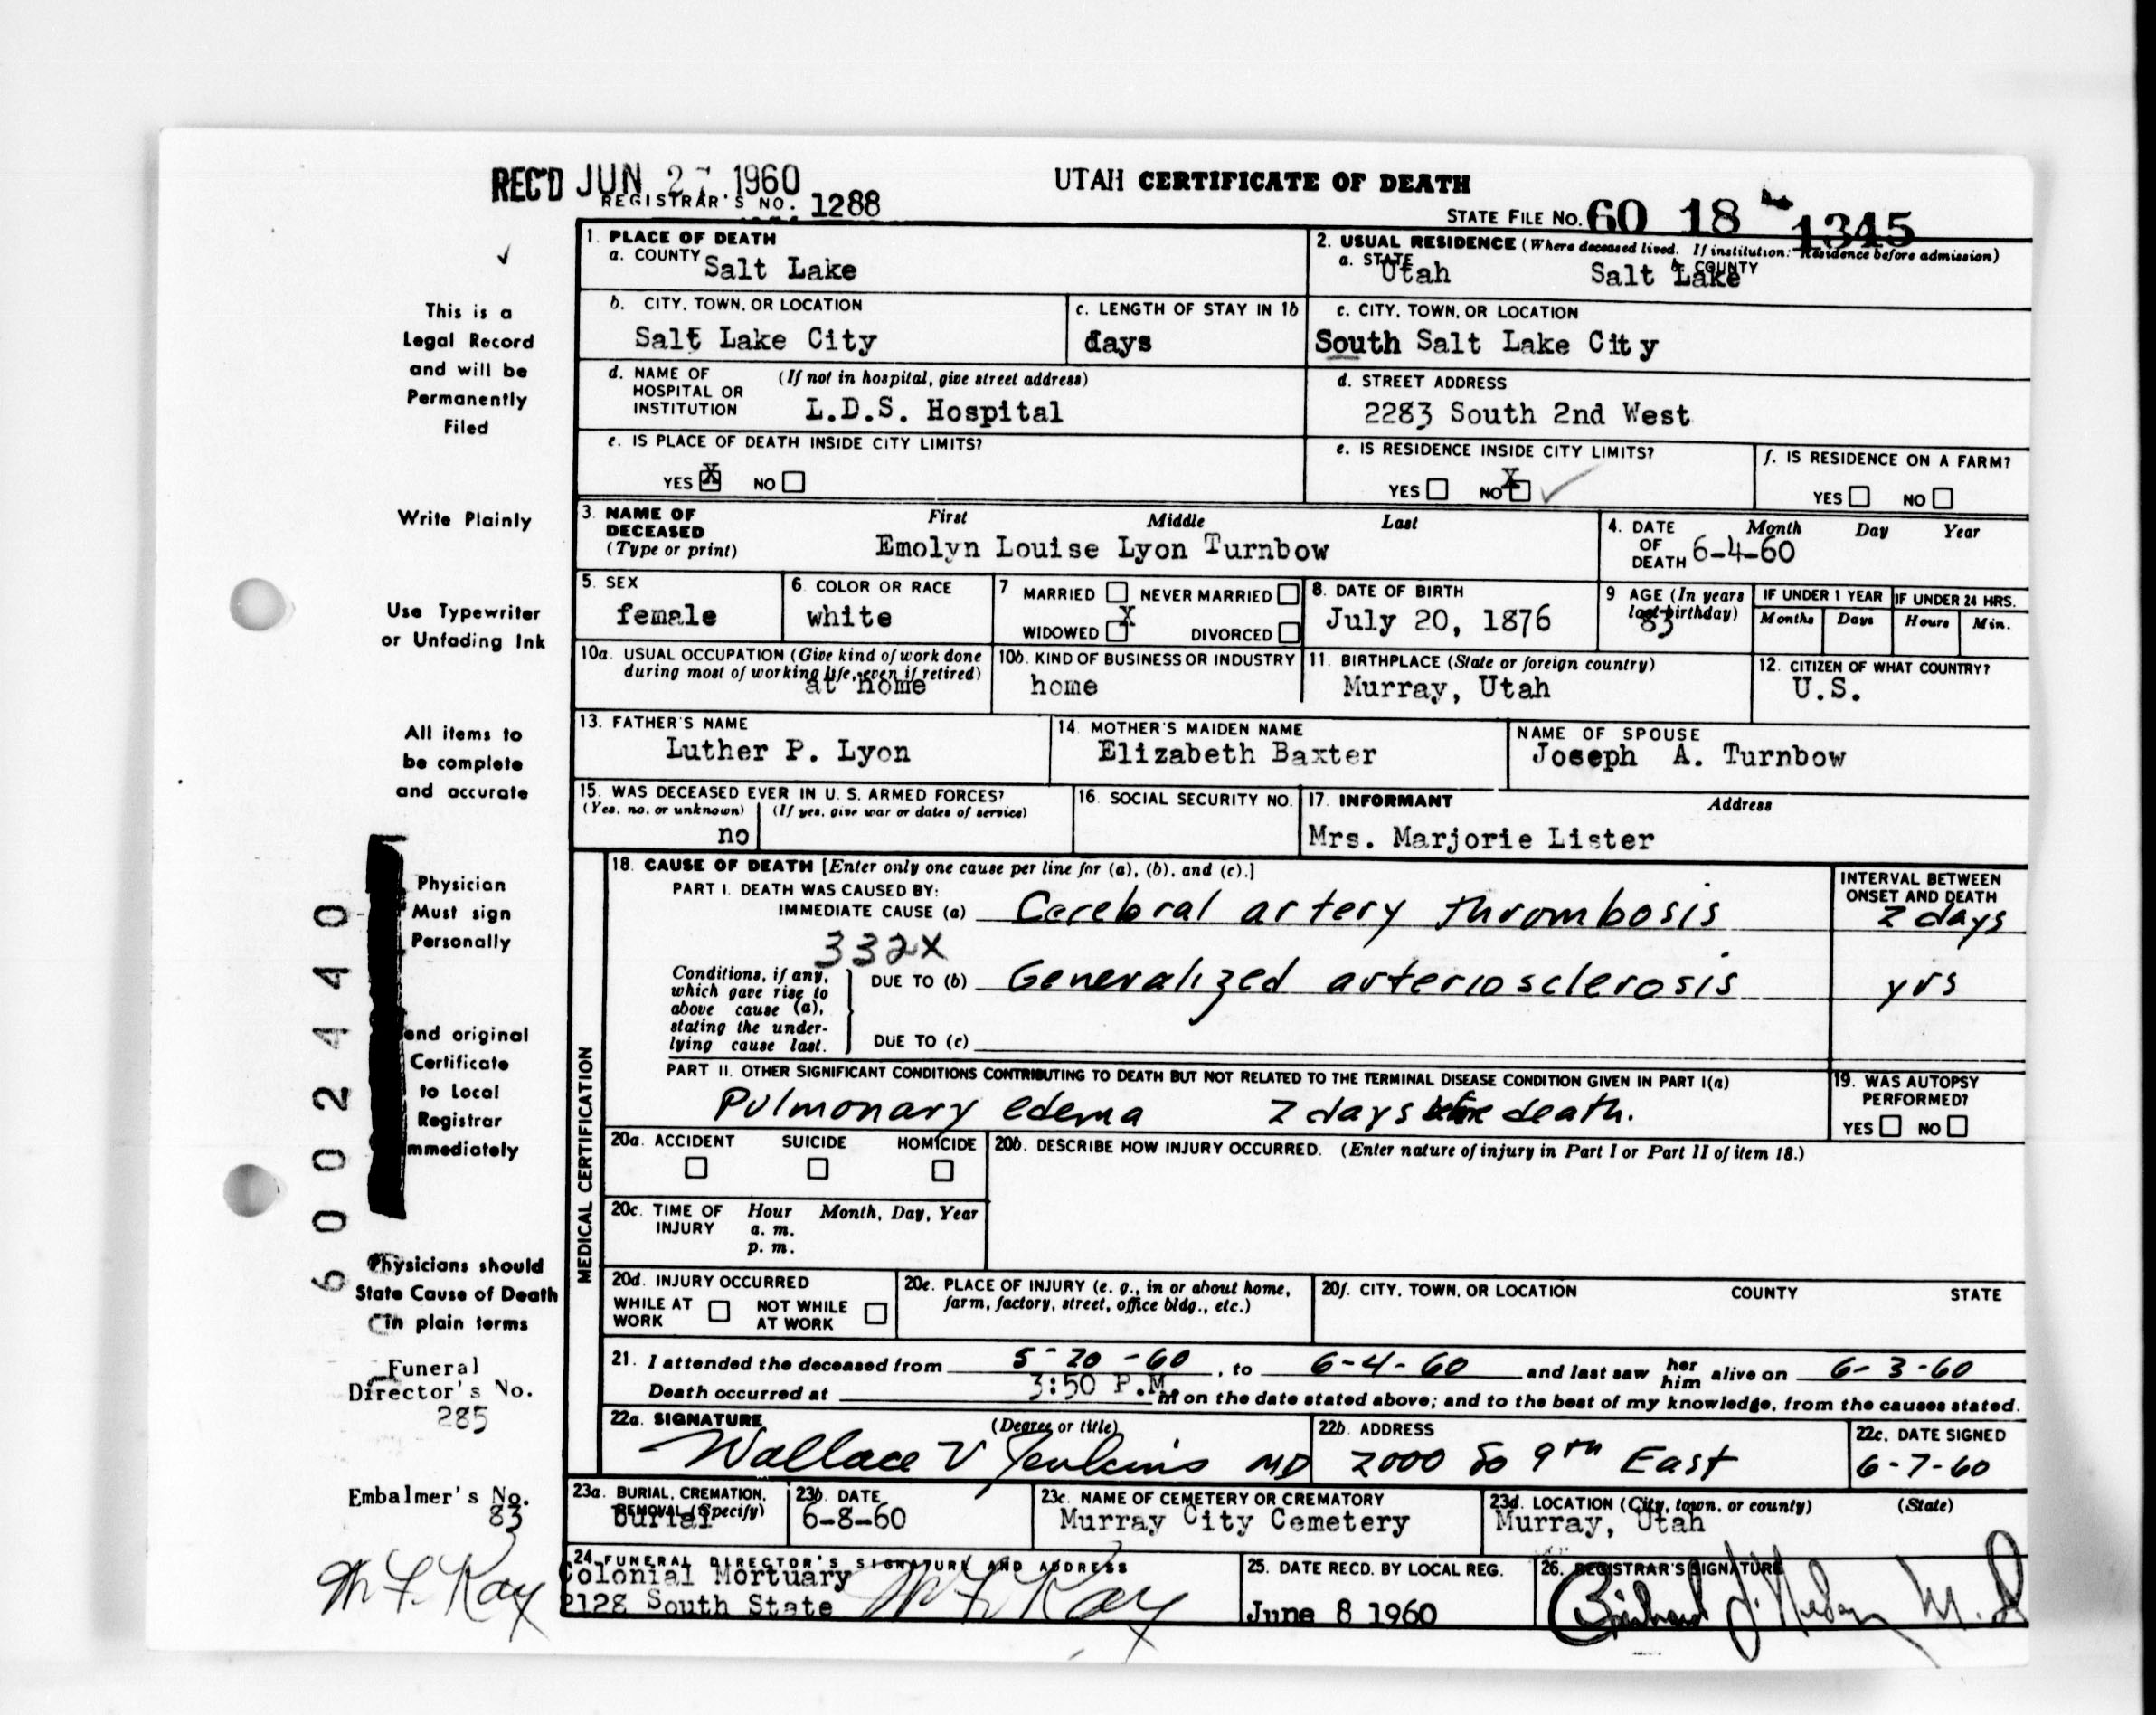 REC'D JUN 27 1960
REGISTRAR'S NO. 1288
UTAH CERTIFICATE OF DEATH
STATE FILE NO. 60 18 1345
1. PLACE OF DEATH
a. COUNTY Salt Lake
2. USUAL RESIDENCE (Where deceased lived. If institution: Residence before admission)
a. STATE Utah b. COUNTY Salt Lake
b. CITY, TOWN, OR LOCATION Salt Lake City
c. LENGTH OF STAY IN 1b days
c. CITY, TOWN, OR LOCATION South Salt Lake City
d. NAME OF HOSPITAL OR INSTITUTION (If not in hospital, give street address) L.D.S. Hospital
d. STREET ADDRESS 2283 South 2nd West
e. IS PLACE OF DEATH INSIDE CITY LIMITS?
YES X NO
e. IS RESIDENCE INSIDE CITY LIMITS?
YES NO X
f. IS RESIDENCE ON A FARM?
YES NO
3. NAME OF DECEASED (Type or print) First Middle Last
Emolyn Louise Lyon Turnbow
4. DATE OF DEATH Month Day Year
6-4-60
5. SEX female
6. COLOR OR RACE white
7 MARRIED NEVER MARRIED
WIDOWED X DIVORCED
8. DATE OF BIRTH July 20, 1876
9 AGE (In years last birthday) 83
IF UNDER 1 YEAR Months Days
IF UNDER 24 HRS. Hours Min.
10a. USUAL OCCUPATION (Give kind of work done during most of working life, even if retired) at home
10b. KIND OF BUSINESS OR INDUSTRY home
11. BIRTHPLACE (State or foreign country) Murray, Utah
12. CITIZEN OF WHAT COUNTRY? U.S.
13. FATHER'S NAME Luther P. Lyon
14. MOTHER'S MAIDEN NAME Elizabeth Baxter
NAME OF SPOUSE Joseph A. Turnbow
15. WAS DECEASED EVER IN U. S. ARMED FORCES?
(Yes, no, or unknown) (If yes, give war or dates of service)
no
16. SOCIAL SECURITY NO.
17. INFORMANT Address
Mrs. Marjorie Lister
MEDICAL CERTIFICATION
18. CAUSE OF DEATH [Enter only one cause per line for (a), (b), and (c).]
PART I. DEATH WAS CAUSED BY:
IMMEDIATE CAUSE (a) Cerebral artery thrombosis
INTERVAL BETWEEN ONSET AND DEATH
2 days
332X
Conditions, if any, which gave rise to above cause (a), stating the underlying cause last.
DUE TO (b) Generalized arteriosclerosis yrs
DUE TO (c)
PART II. OTHER SIGNIFICANT CONDITIONS CONTRIBUTING TO DEATH BUT NOT RELATED TO THE TERMINAL DISEASE CONDITION GIVEN IN PART I(a)
Pulmonary edema 2 days before death.
19. WAS AUTOPSY PERFORMED?
YES NO
20a. ACCIDENT SUICIDE HOMICIDE
20b. DESCRIBE HOW INJURY OCCURRED. (Enter nature of injury in Part I or Part II of item 18.)
20c. TIME OF INJURY Hour Month, Day, Year
a. m.
p. m.
20d. INJURY OCCURRED
WHILE AT WORK NOT WHILE AT WORK
20e. PLACE OF INJURY (e. g., in or about home, farm, factory, street, office bldg., etc.)
20f. CITY, TOWN, OR LOCATION COUNTY STATE
21. I attended the deceased from 5-20-60, to 6-4-60 and last saw her him alive on 6-3-60
Death occurred at 3:50 P.M. m on the date stated above; and to the best of my knowledge, from the causes stated.
22a. SIGNATURE (Degree or title)
Wallace V Jenkins MD
22b. ADDRESS 2000 So 9th East
22c. DATE SIGNED 6-7-60
23a. BURIAL, CREMATION, REMOVAL (Specify) Burial
23b. DATE 6-8-60
23c. NAME OF CEMETERY OR CREMATORY Murray City Cemetery
23d. LOCATION (City, town, or county) (State) Murray, Utah
24. FUNERAL DIRECTOR'S SIGNATURE AND ADDRESS
Colonial Mortuary
2128 South State
25. DATE RECD. BY LOCAL REG. June 8 1960
26. REGISTRAR'S SIGNATURE
This is a
Legal Record
and will be
Permanently
Filed
Write Plainly
Use Typewriter
or Unfading Ink
All items to
be complete
and accurate
Physician
Must sign
Personally
end original
Certificate
to Local
Registrar
mmediately
6002440
Physicians should
State Cause of Death
in plain terms
Funeral
Director's No.
285
Embalmer's No.
83